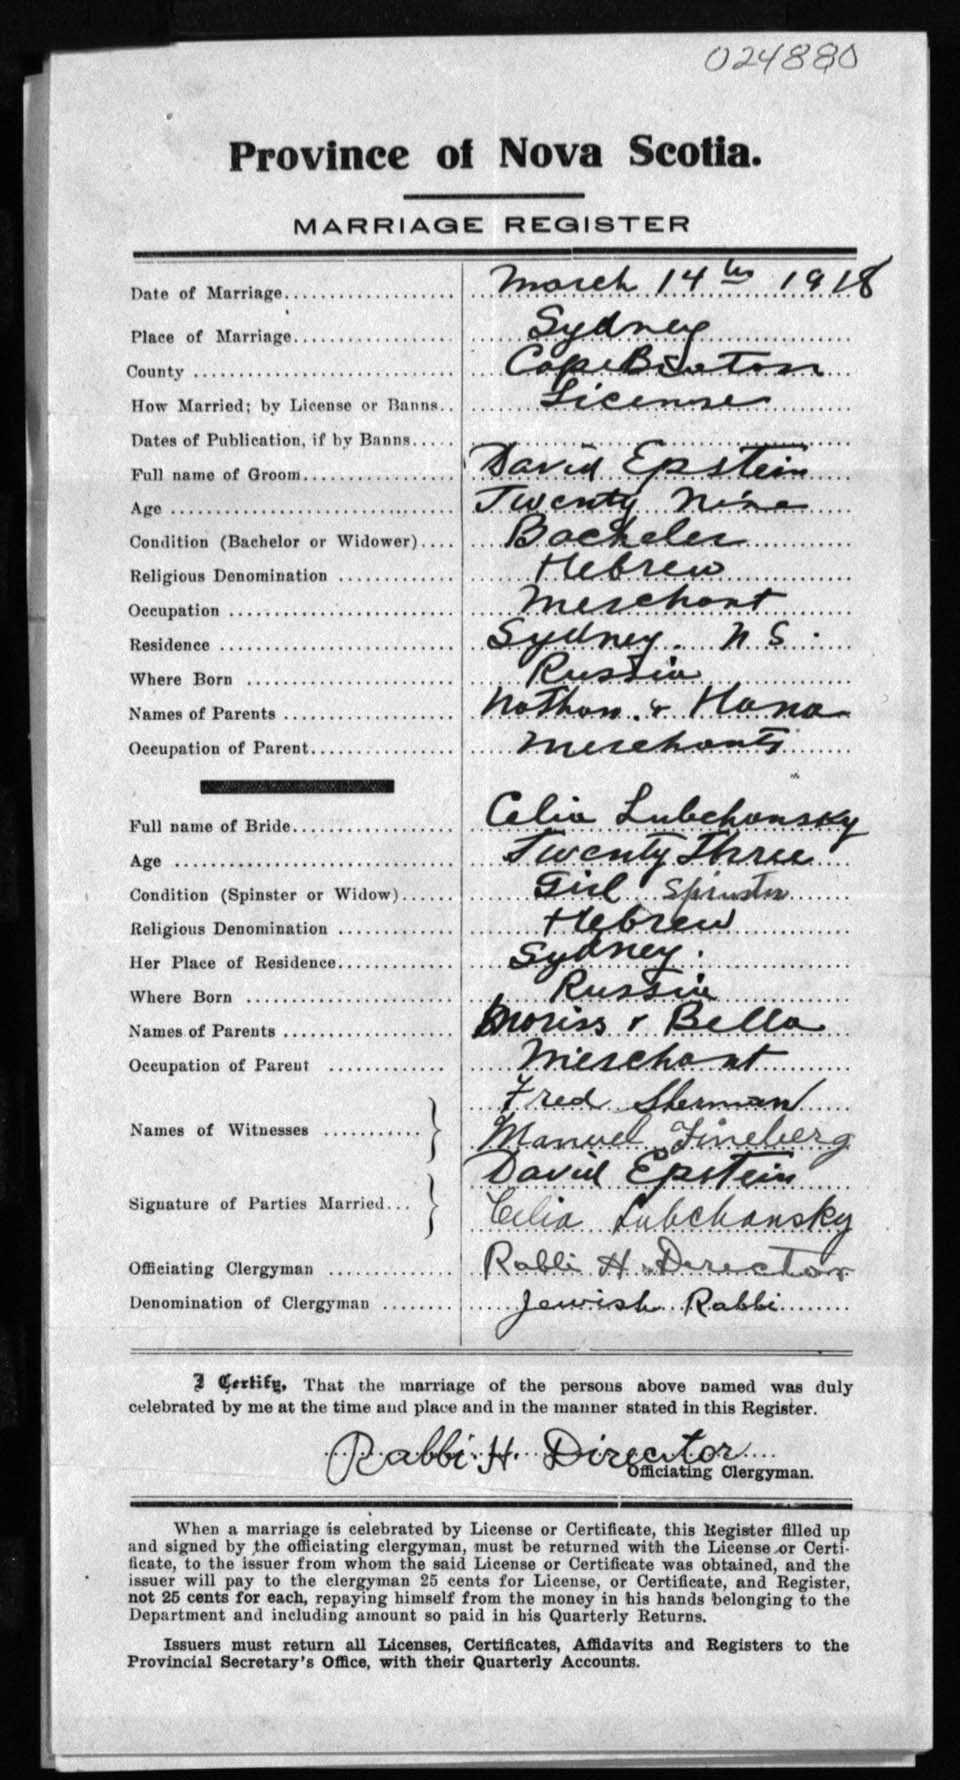 024880
Province of Nova Scotia.
MARRIAGE REGISTER
Date of Marriage.................... March 14th 1918
Place of Marriage................... Sydney
County ............................. Cape Breton
How Married; by License or Banns.. License
Dates of Publication, if by Banns.....
Full name of Groom.................. David Epstein
Age ................................ Twenty Nine
Condition (Bachelor or Widower).... Bacheler
Religious Denomination ............. Hebrew
Occupation ......................... Merchant
Residence .......................... Sydney. N S.
Where Born ......................... Russia
Names of Parents ................... Nathan. & Hana
Occupation of Parent................ Merchants
Full name of Bride.................. Celia Lubchansky
Age ................................ Twenty Three
Condition (Spinster or Widow)...... Girl Spinster
Religious Denomination ............. Hebrew
Her Place of Residence.............. Sydney.
Where Born ......................... Russia
Names of Parents ................... Moriss & Bella
Occupation of Parent ............. Merchant
Fred Sherman
Names of Witnesses ........... } Manuel Fineberg
David Epstein
Signature of Parties Married... } Celia Lubchansky
Officiating Clergyman .............. Rabbi H. Director
Denomination of Clergyman ........ Jewish Rabbi
I Certify, That the marriage of the persons above named was duly
celebrated by me at the time and place and in the manner stated in this Register.
Rabbi H. Director
Officiating Clergyman.
When a marriage is celebrated by License or Certificate, this Register filled up
and signed by the officiating clergyman, must be returned with the License or Certi-
ficate, to the issuer from whom the said License or Certificate was obtained, and the
issuer will pay to the clergyman 25 cents for License, or Certificate, and Register,
not 25 cents for each, repaying himself from the money in his hands belonging to the
Department and including amount so paid in his Quarterly Returns.
Issuers must return all Licenses, Certificates, Affidavits and Registers to the
Provincial Secretary's Office, with their Quarterly Accounts.